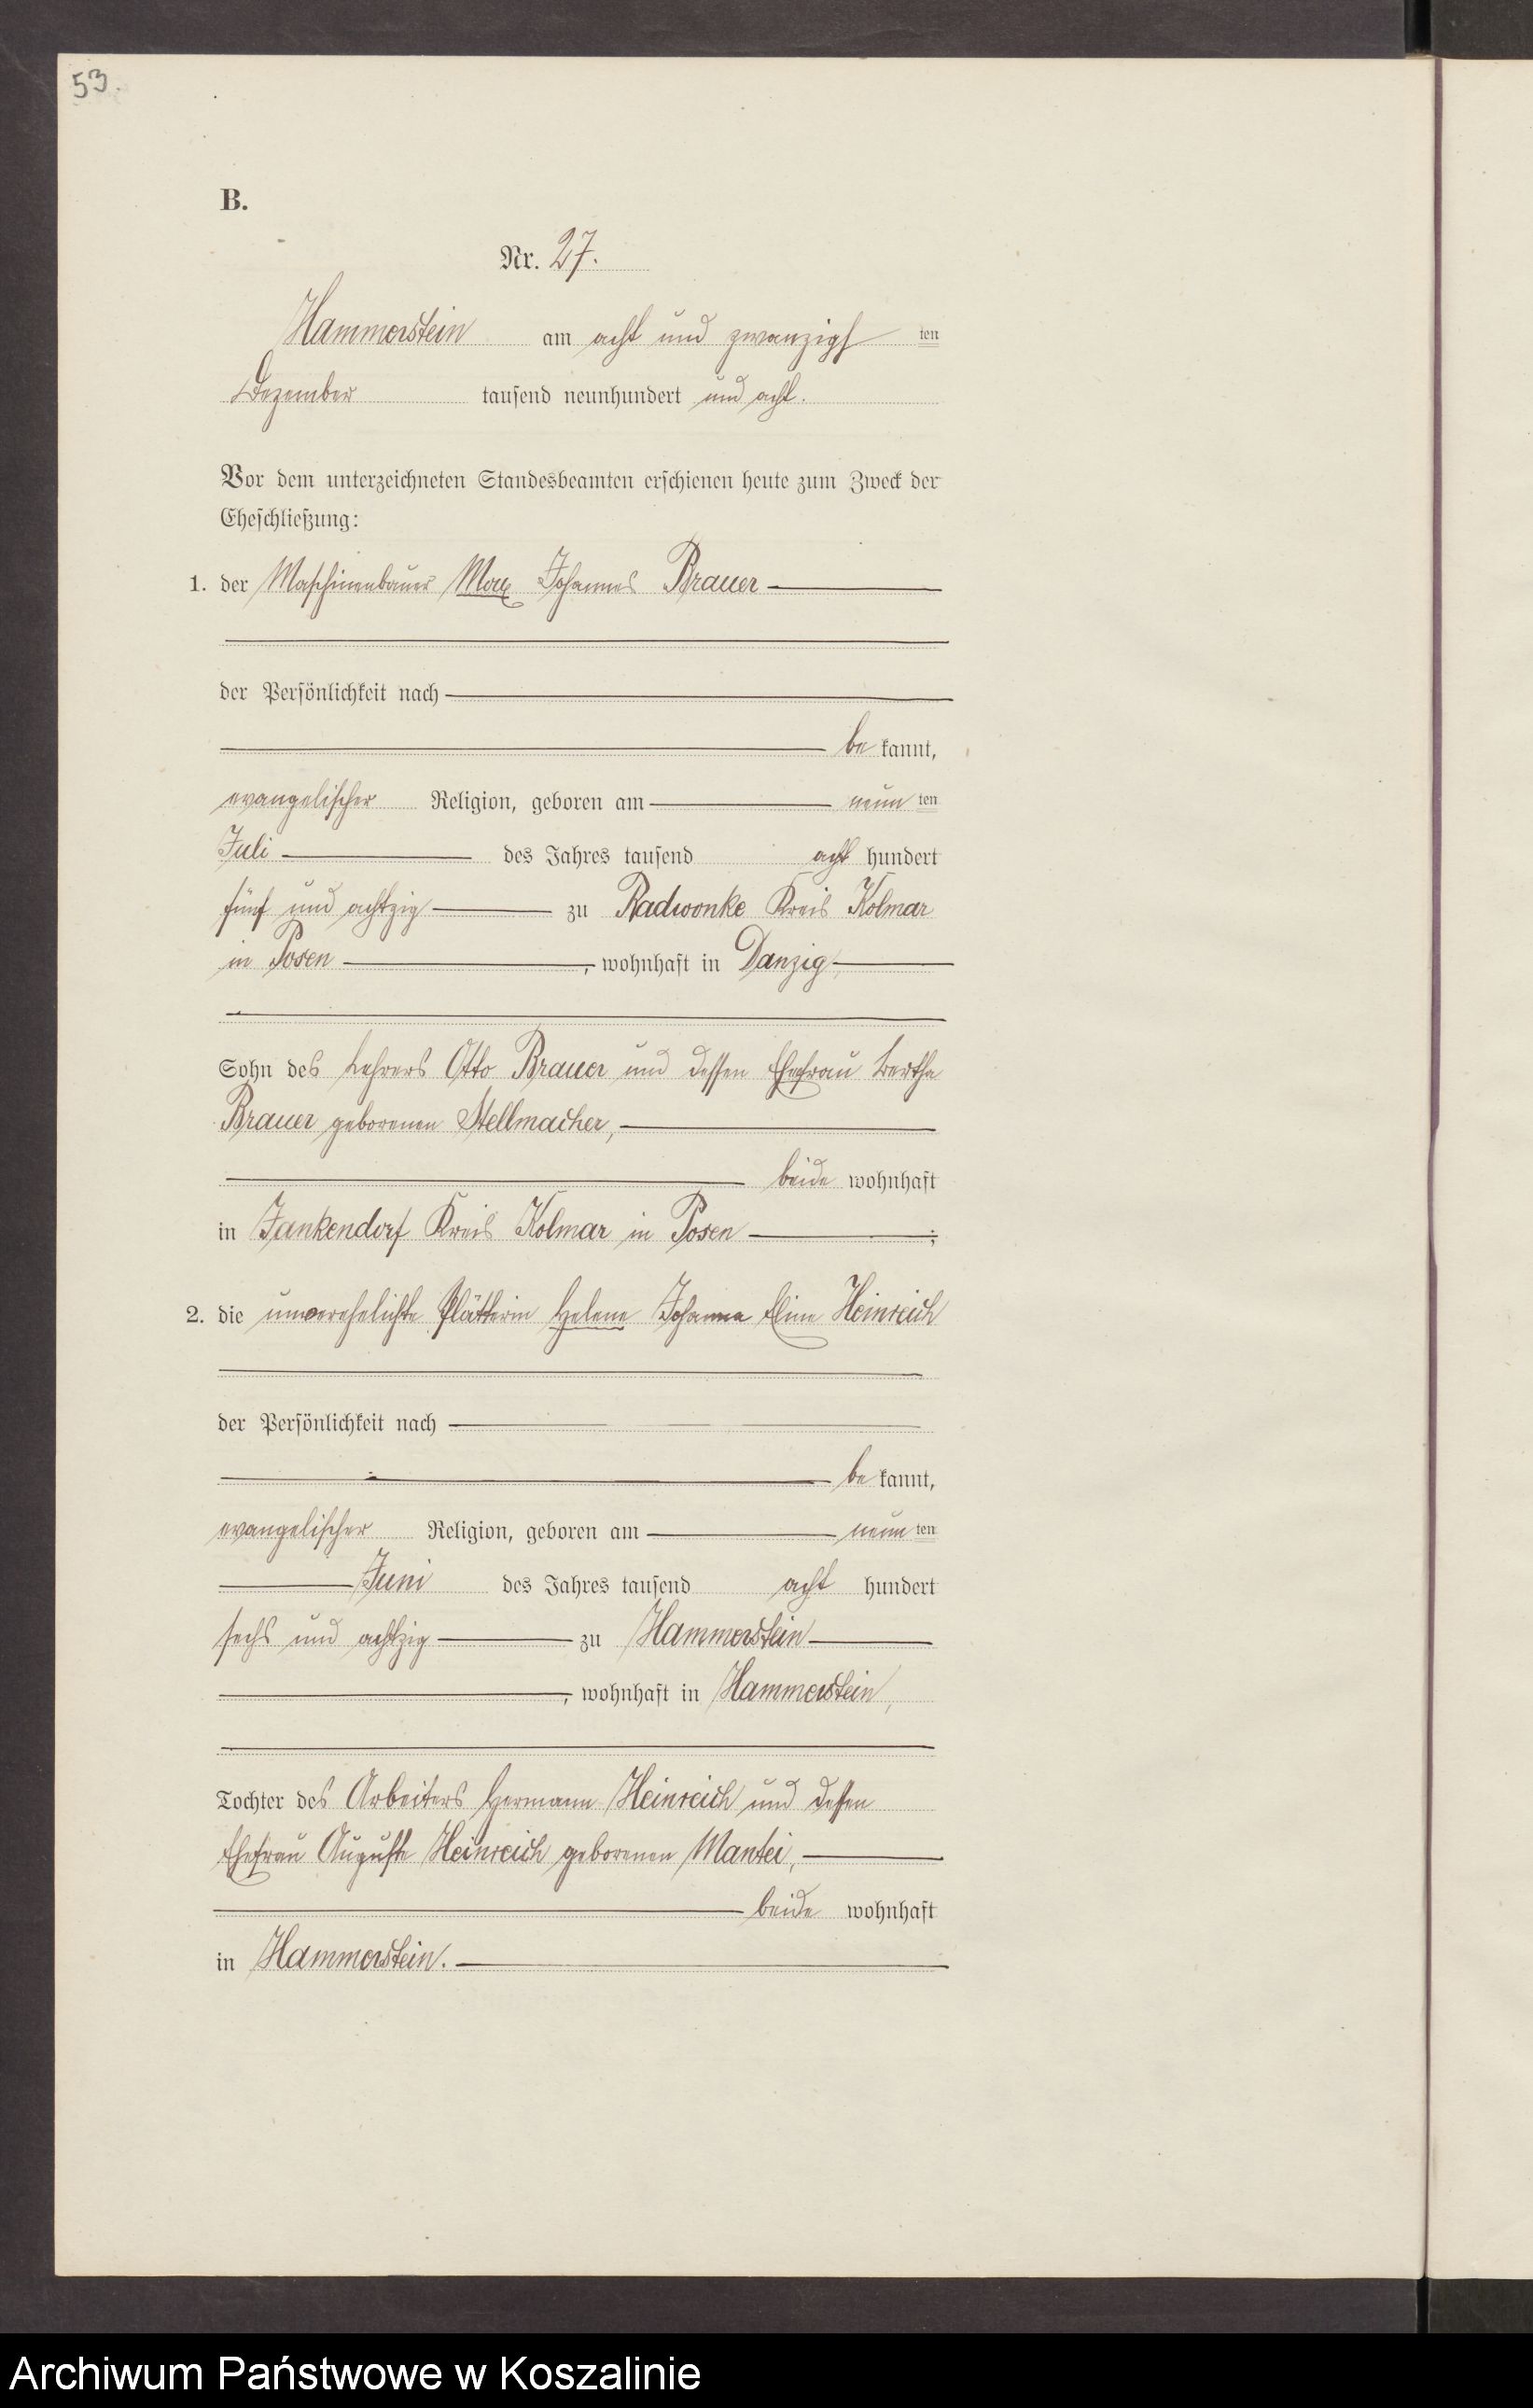 53.
B.
Nr. 27.
Hammerstein am acht und zwanzigsten
Dezember tausend neunhundert und acht.
Vor dem unterzeichneten Standesbeamten erschienen heute zum Zweck der
Eheschließung:
1. der Maschinenbauer Max Johannes Brauer
der Persönlichkeit nach
be kannt,
evangelischer Religion, geboren am neun ten
Juli des Jahres tausend acht hundert
fünf und achtzig zu Radwonke Kreis Kolmar
in Posen, wohnhaft in Danzig
Sohn des Lehrers Otto Brauer und dessen Ehefrau Bertha
Brauer geborenen Stellmacher,
beide wohnhaft
in Jankendorf Kreis Kolmar in Posen;
2. die unverehelichte Plätterin Helene Johanna Eline Heinreich
der Persönlichkeit nach
be kannt,
evangelischer Religion, geboren am neun ten
Juni des Jahres tausend acht hundert
sechs und achtzig zu Hammerstein
, wohnhaft in Hammerstein,
Tochter des Arbeiters Hermann Heinreich und dessen
Ehefrau Auguste Heinreich geborenen Mantei,
beide wohnhaft
in Hammerstein.
Archiwum Państwowe w Koszalinie